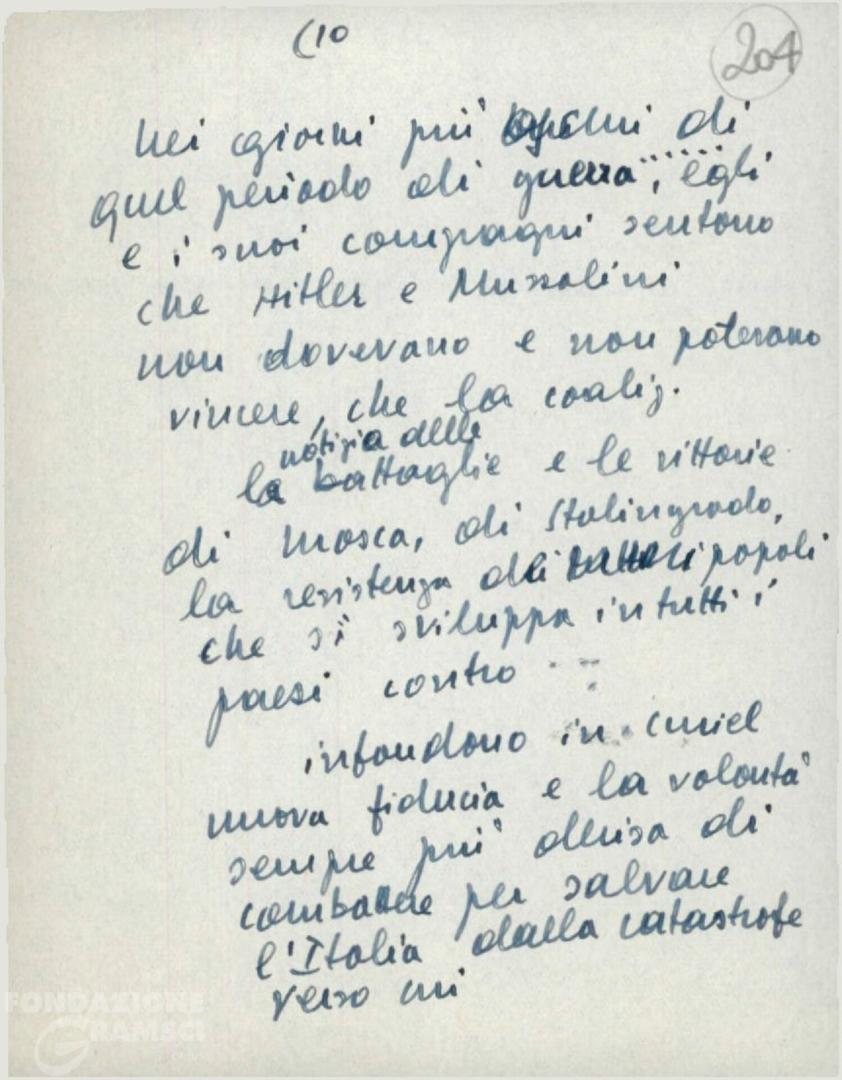 (10
204
Nei giorni più oscuri di
quel periodo di guerra, egli
e i suoi compagni sentono
che Hitler e Mussolini
non dovevano e non potevano
vincere, che la coaliz.
notizia delle
la battaglie e le vittorie
di Mosca, di Stalingrado,
la resistenza dei popoli
che si sviluppa in tutti i
paesi contro
infondono in Curiel
nuova fiducia e la volontà
sempre più decisa di
combattere per salvare
l'Italia dalla catastrofe
verso cui
FONDAZIONE
GRAMSCI